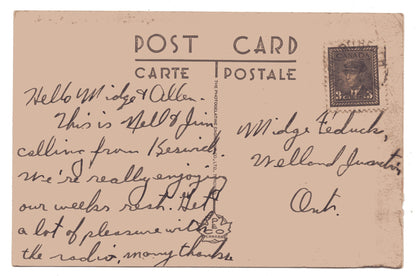 POST CARD
CARTE POSTALE
CANADA
3 3
Hello Midge & Allen.
This is Nell & Jim
calling from Keswick.
We're really enjoying
our weeks rest. Get
a lot of pleasure with
the radio, many thanks
Midge Feduck,
Welland Junction
Ont.
PECO